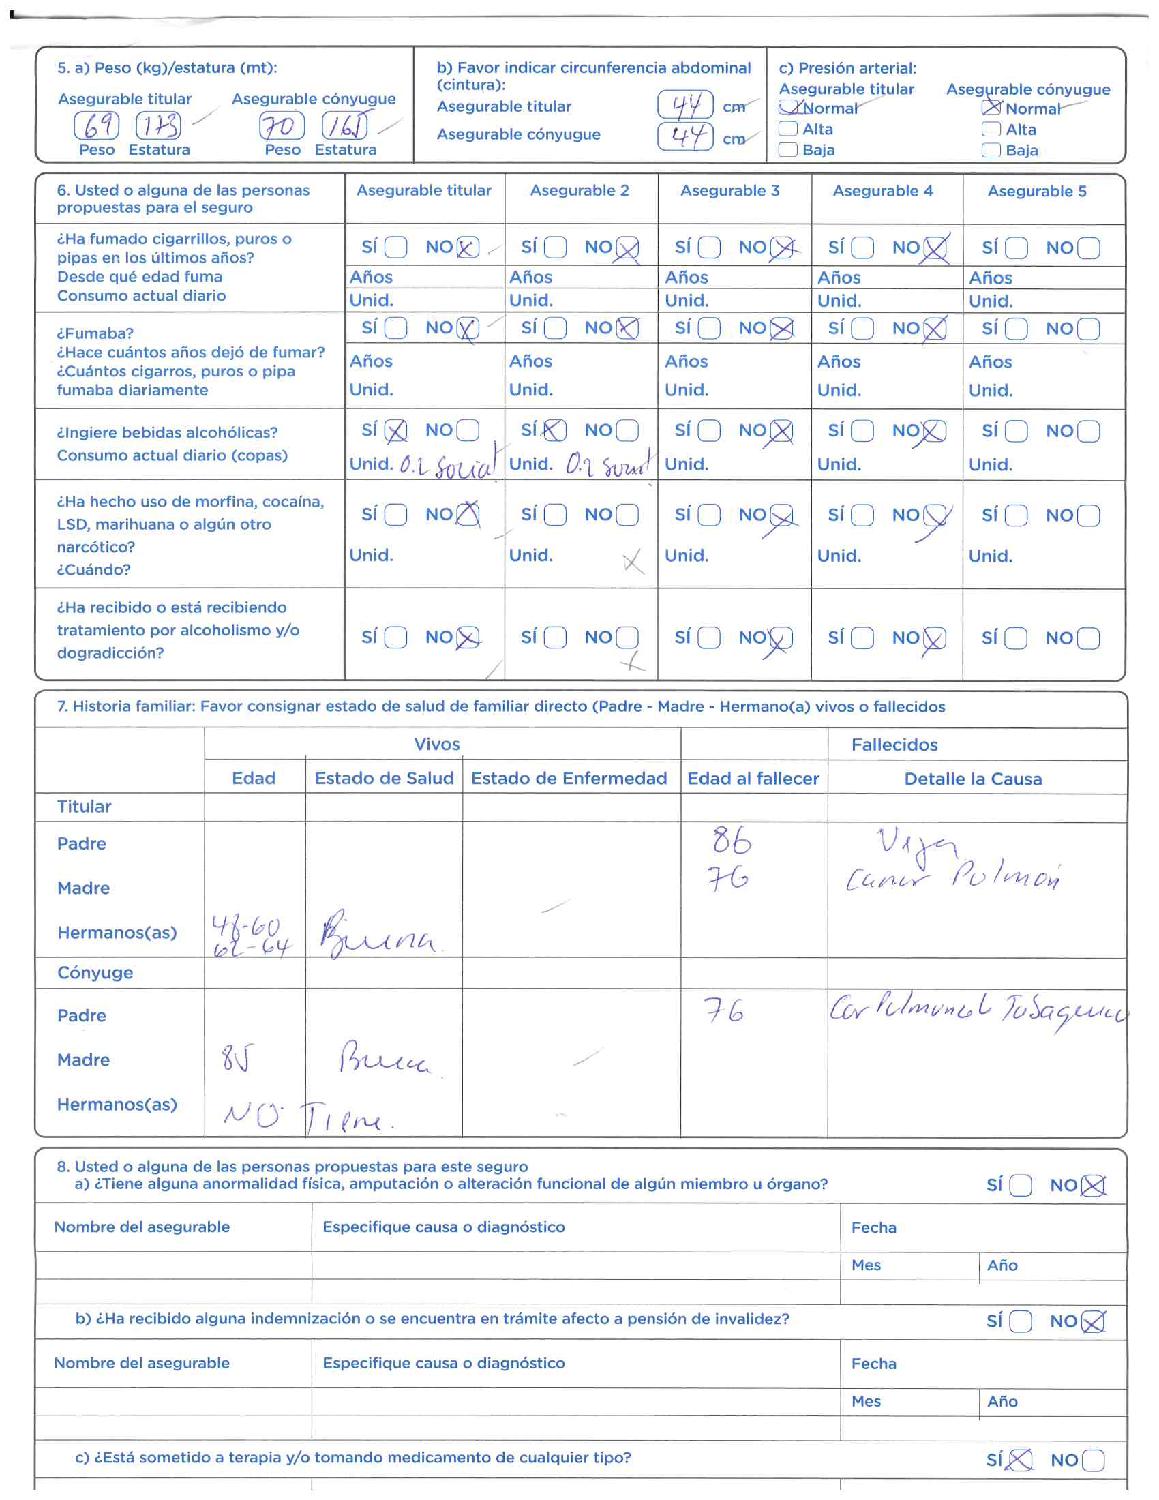 5. a) Peso (kg)/estatura (mt):
Asegurable titular Asegurable cónyugue
69 173 70 165
Peso Estatura Peso Estatura
b) Favor indicar circunferencia abdominal
(cintura):
Asegurable titular 44 cm
Asegurable cónyugue 44 cm
c) Presión arterial:
Asegurable titular Asegurable cónyugue
Normal Normal
Alta Alta
Baja Baja
6. Usted o alguna de las personas
propuestas para el seguro
Asegurable titular Asegurable 2 Asegurable 3 Asegurable 4 Asegurable 5
¿Ha fumado cigarrillos, puros o
pipas en los últimos años?
Desde qué edad fuma
Consumo actual diario
SÍ NO SÍ NO SÍ NO SÍ NO SÍ NO
Años Años Años Años Años
Unid. Unid. Unid. Unid. Unid.
¿Fumaba?
¿Hace cuántos años dejó de fumar?
¿Cuántos cigarros, puros o pipa
fumaba diariamente
SÍ NO SÍ NO SÍ NO SÍ NO SÍ NO
Años Años Años Años Años
Unid. Unid. Unid. Unid. Unid.
¿Ingiere bebidas alcohólicas?
Consumo actual diario (copas)
SÍ NO SÍ NO SÍ NO SÍ NO SÍ NO
Unid. Social Unid. Unid. Unid. Unid.
¿Ha hecho uso de morfina, cocaína,
LSD, marihuana o algún otro
narcótico?
¿Cuándo?
SÍ NO SÍ NO SÍ NO SÍ NO SÍ NO
Unid. Unid. Unid. Unid. Unid.
¿Ha recibido o está recibiendo
tratamiento por alcoholismo y/o
dogradicción?
SÍ NO SÍ NO SÍ NO SÍ NO SÍ NO
7. Historia familiar: Favor consignar estado de salud de familiar directo (Padre - Madre - Hermano(a) vivos o fallecidos
Vivos Fallecidos
Edad Estado de Salud Estado de Enfermedad Edad al fallecer Detalle la Causa
Titular
Padre 86
Madre 76 Cancer Pulmón
Hermanos(as) 48-60
62-64 Buena
Cónyuge
Padre 76
Madre 85 Buena
Hermanos(as) NO Tiene.
8. Usted o alguna de las personas propuestas para este seguro
a) ¿Tiene alguna anormalidad física, amputación o alteración funcional de algún miembro u órgano? SÍ NO
Nombre del asegurable Especifique causa o diagnóstico Fecha
Mes Año
b) ¿Ha recibido alguna indemnización o se encuentra en trámite afecto a pensión de invalidez? SÍ NO
Nombre del asegurable Especifique causa o diagnóstico Fecha
Mes Año
c) ¿Está sometido a terapia y/o tomando medicamento de cualquier tipo? SÍ NO